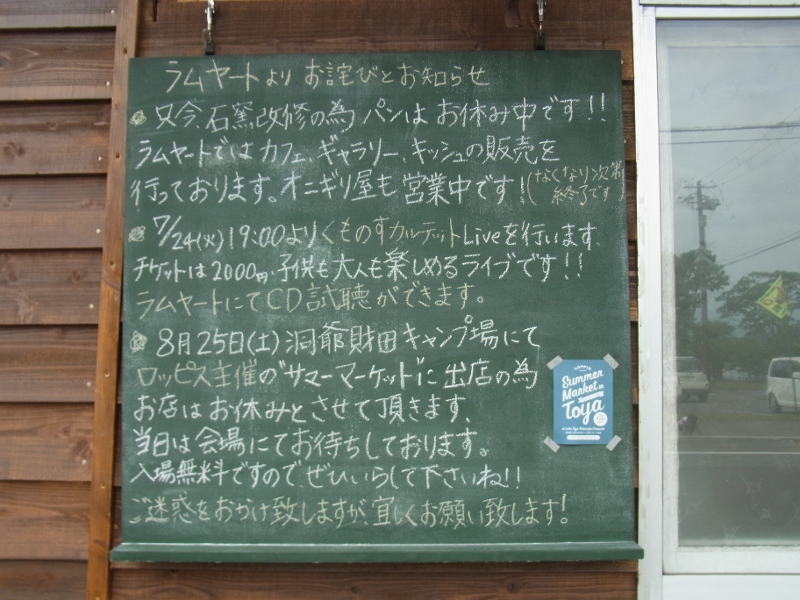 ラムヤートより お詫びとお知らせ
只今、石窯改修の為 パンは お休み中です!!
ラムヤートではカフェ、ギャラリー、キッシュの販売を
行っております。オニギリ屋も営業中です!(なくなり次第
終了です)
7/24(火)19:00よりくものすカルテットLiveを行います。
チケットは2000円・子供も大人も楽しめるライブです!!
ラムヤートにてCD試聴ができます。
8月25日(土)洞爺財田キャンプ場にて
ロッピス主催の"サマーマーケット"に出店の為
お店はお休みとさせて頂きます。
当日は会場にてお待ちしております。
入場無料ですのでぜひいらして下さいね!!
ご迷惑をおかけ致しますが、宜しくお願い致します!
Summer
Market in
Toya